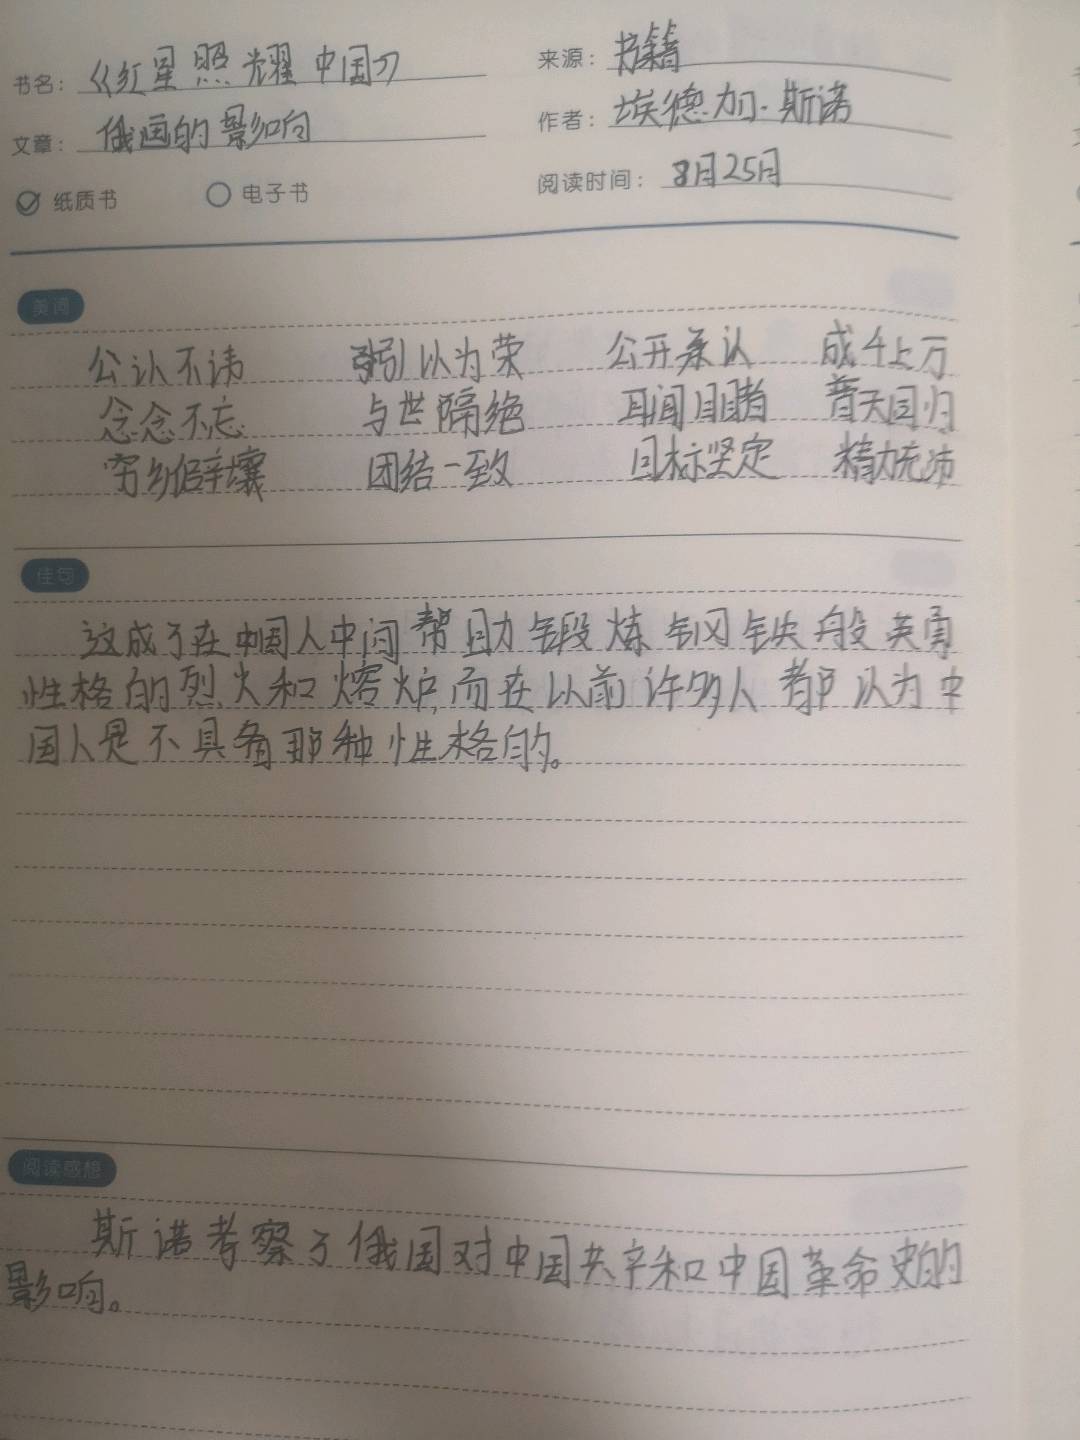 书名：《红星照耀中国》 来源：书籍
文章：俄国的影响 作者：埃德加·斯诺
纸质书 电子书 阅读时间：8月25日
美词
公认不讳 引以为荣 公开承认 成千上万
念念不忘 与世隔绝 耳闻目睹 普天回归
穷乡僻壤 团结一致 目标坚定 精力充沛
佳句
这成了在中国人中间帮助锻炼钢铁般英勇
性格的烈火和熔炉，而在以前许多人都认为中
国人是不具有那种性格的。
阅读感想
斯诺考察了俄国对中国共产和中国革命史的
影响。